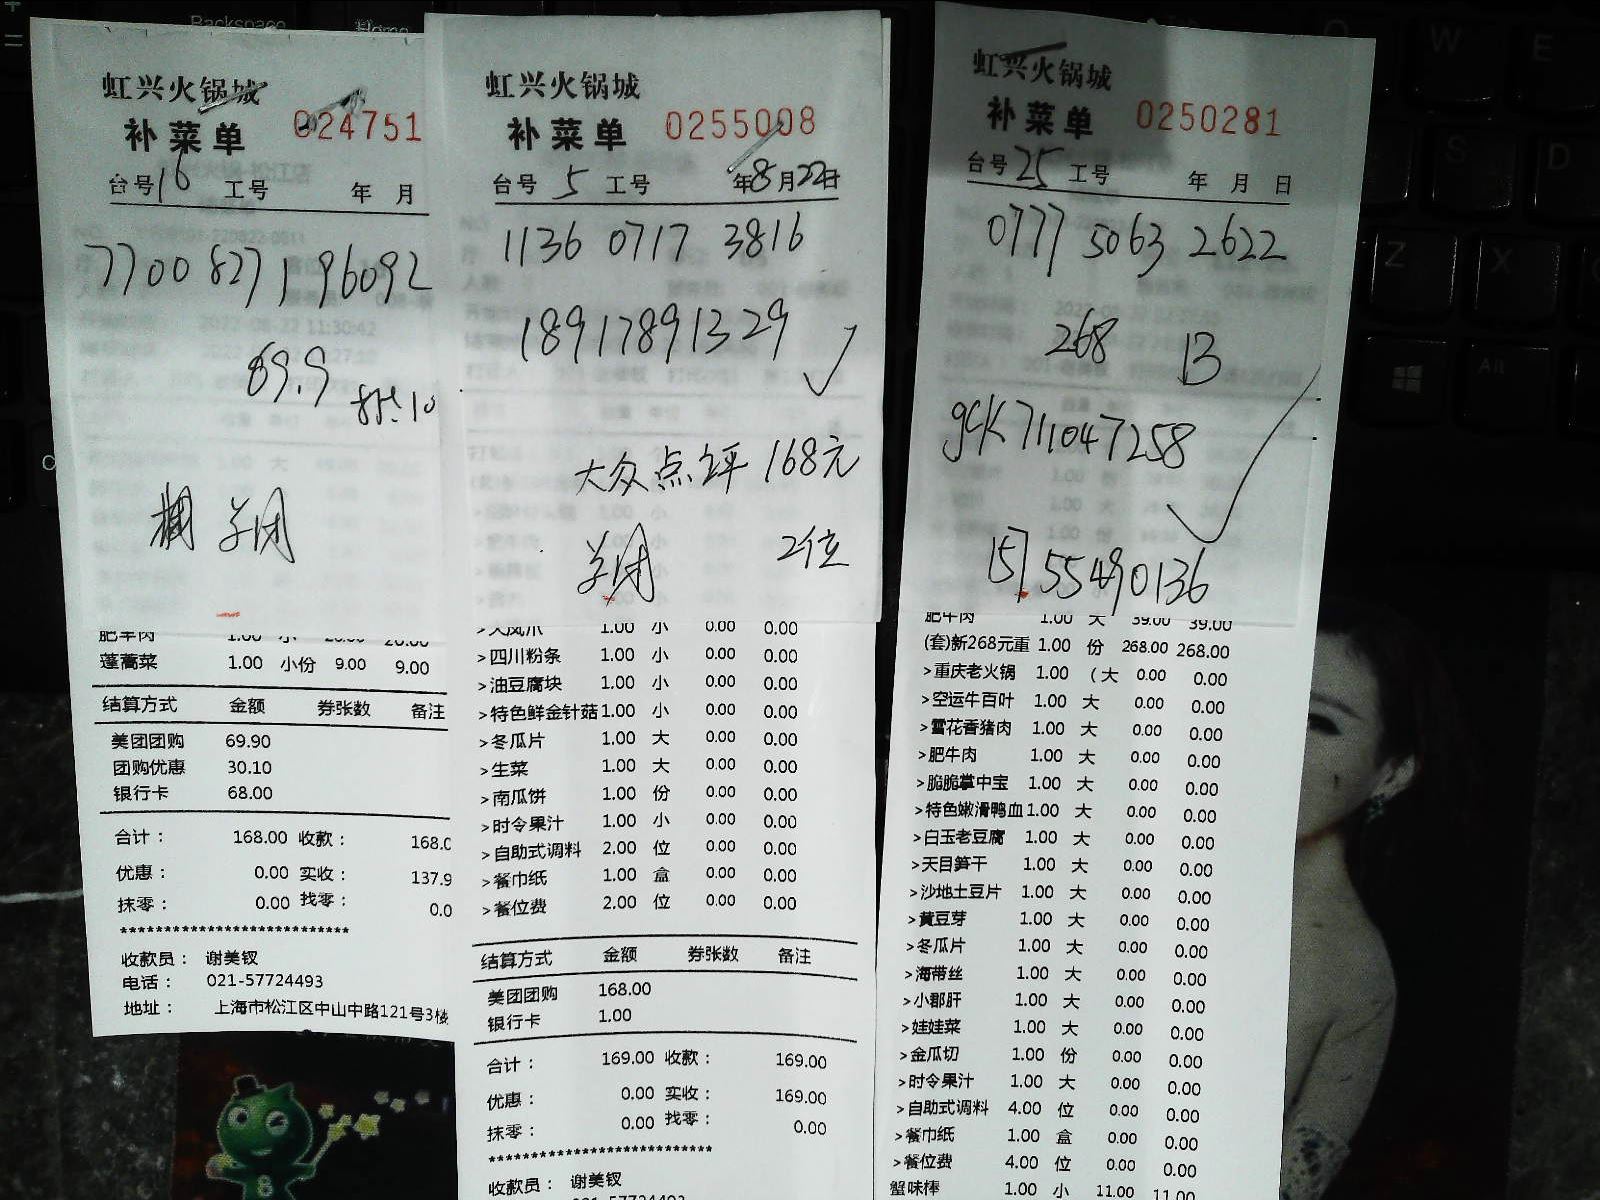 Backspace
Home
虹兴火锅城
补菜单 024751
台号 16 工号 年 月
7700 8271 96092
69.9
结算方式 金额 券张数 备注
肥羊肉 1.00 小
蓬蒿菜 1.00 小份 9.00 9.00
美团团购 69.90
团购优惠 30.10
银行卡 68.00
合计： 168.00 收款： 168.0
优惠： 0.00 实收： 137.9
抹零： 0.00 找零： 0.0
***************************
收款员： 谢美钗
电话： 021-57724493
地址： 上海市松江区中山中路121号3楼
虹兴火锅城
补菜单 0255008
台号 5 工号 年8月22日
1136 0717 3816
18917891329
大众点评 168元
2位
>大凤爪 1.00 小 0.00 0.00
>四川粉条 1.00 小 0.00 0.00
>油豆腐块 1.00 小 0.00 0.00
>特色鲜金针菇 1.00 小 0.00 0.00
>冬瓜片 1.00 大 0.00 0.00
>生菜 1.00 大 0.00 0.00
>南瓜饼 1.00 份 0.00 0.00
>时令果汁 1.00 小 0.00 0.00
>自助式调料 2.00 位 0.00 0.00
>餐巾纸 1.00 盒 0.00 0.00
>餐位费 2.00 位 0.00 0.00
结算方式 金额 券张数 备注
美团团购 168.00
银行卡 1.00
合计： 169.00 收款： 169.00
优惠： 0.00 实收： 169.00
抹零： 0.00 找零： 0.00
***************************
收款员： 谢美钗
虹兴火锅城
补菜单 0250281
台号 25 工号 年 月 日
0777 5063 2622
268 13
gck711047258
15755490136
肥牛肉 1.00 大 39.00 39.00
(套)新268元重 1.00 份 268.00 268.00
>重庆老火锅 1.00 (大 0.00 0.00
>空运牛百叶 1.00 大 0.00 0.00
>雪花香猪肉 1.00 大 0.00 0.00
>肥牛肉 1.00 大 0.00 0.00
>脆脆掌中宝 1.00 大 0.00 0.00
>特色嫩滑鸭血 1.00 大 0.00 0.00
>白玉老豆腐 1.00 大 0.00 0.00
>天目笋干 1.00 大 0.00 0.00
>沙地土豆片 1.00 大 0.00 0.00
>黄豆芽 1.00 大 0.00 0.00
>冬瓜片 1.00 大 0.00 0.00
>海带丝 1.00 大 0.00 0.00
>小郡肝 1.00 大 0.00 0.00
>娃娃菜 1.00 大 0.00 0.00
>金瓜切 1.00 份 0.00 0.00
>时令果汁 1.00 大 0.00 0.00
>自助式调料 4.00 位 0.00 0.00
>餐巾纸 1.00 盒 0.00 0.00
>餐位费 4.00 位 0.00 0.00
蟹味棒 1.00 小 11.00 11.00
W
E
S
D
Z
X
Alt
8